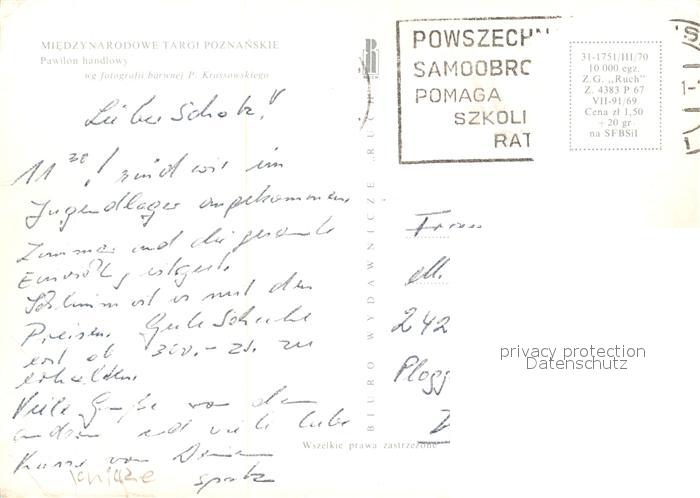 MIĘDZYNARODOWE TARGI POZNAŃSKIE
Pawilon handlowy
wg fotografii barwnej P. Krassowskiego
Lieber Schatz!
11³⁰! sind wir im
Jugendlager angekommen
Zimmer und die gesamte
Schlimm ist es mit den
Preisen. Gute Schuhe
erst ab 300,- Zł. zu
erhalten.
Viele Grüße von den
andern und viele liebe
Küsse von Deinem
Spatz
BIURO WYDAWNICZE RUCH
Wszelkie prawa zastrzeżone
POWSZECHN
SAMOOBRO
POMAGA
SZKOLI
RAT
31-1751/III/70
10 000 egz.
Z.G. „Ruch"
Z. 4383 P 67
VII-91/69
Cena zł 1,50
+ 20 gr
na SFBSiI
Frau
M.
242
Plogg
privacy protection
Datenschutz